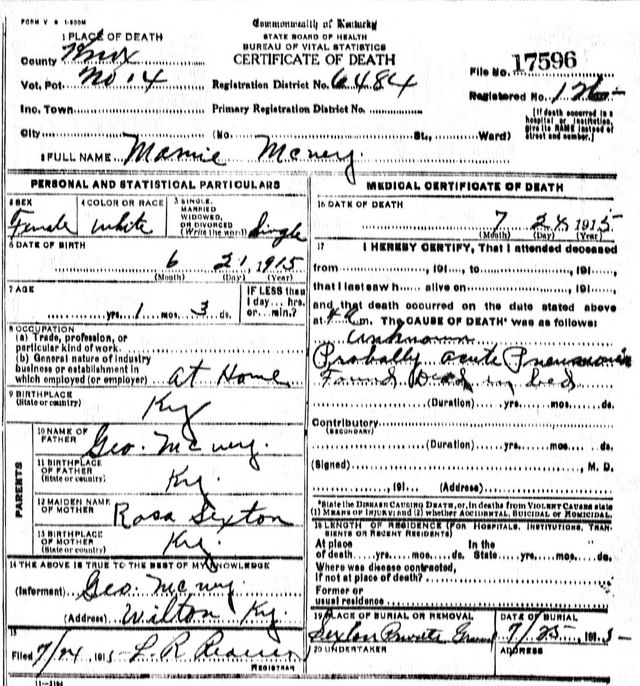 FORM V S 1-500M
Commonwealth of Kentucky
STATE BOARD OF HEALTH
BUREAU OF VITAL STATISTICS
CERTIFICATE OF DEATH
1 PLACE OF DEATH
County Knox
Vot. Pct. No. 4
Inc. Town
City (No. St., Ward)
Registration District No. 6484
Primary Registration District No.
File No. 17596
Registered No. 126
[If death occurred in a hospital or institution, give its NAME instead of street and number.]
2 FULL NAME Mamie
PERSONAL AND STATISTICAL PARTICULARS
3 SEX Female
4 COLOR OR RACE white
5 SINGLE, MARRIED WIDOWED, OR DIVORCED (Write the word) Single
6 DATE OF BIRTH
6 21 1915
(Month) (Day) (Year)
7 AGE
yrs. 1 mos. 3 ds.
IF LESS than 1 day... hrs. or min.?
8 OCCUPATION
(a) Trade, profession, or particular kind of work
(b) General nature of industry business or establishment in which employed (or employer) at Home
9 BIRTHPLACE
(State or country) Ky
PARENTS
10 NAME OF FATHER Geo.
11 BIRTHPLACE OF FATHER (State or country) Ky.
12 MAIDEN NAME OF MOTHER Rosa Sexton
13 BIRTHPLACE OF MOTHER (State or country) Ky
14 THE ABOVE IS TRUE TO THE BEST OF MY KNOWLEDGE
(Informant) Geo.
(Address) Wilton Ky.
15
Filed 7/24 1915 L R
REGISTRAR
11-3184
MEDICAL CERTIFICATE OF DEATH
16 DATE OF DEATH
7 24 1915
(Month) (Day) (Year)
17 I HEREBY CERTIFY, That I attended deceased
from , 191 , to , 191 ,
that I last saw h alive on , 191 ,
and that death occurred on the date stated above
at 4 a m. The CAUSE OF DEATH* was as follows:
unknown
Probally acute Pneumonia
Found Dead in bed
(Duration) yrs. mos. ds.
Contributory
(SECONDARY)
(Duration) yrs. mos. ds.
(Signed) , M. D.
, 191 . (Address)
*State the DISEASE CAUSING DEATH, or, in deaths from VIOLENT CAUSES state (1) MEANS OF INJURY; and (2) whether ACCIDENTAL, SUICIDAL or HOMICIDAL.
18 LENGTH OF RESIDENCE (FOR HOSPITALS, INSTITUTIONS, TRANSIENTS OR RECENT RESIDENTS)
At place of death yrs. mos. ds. In the State yrs. mos. ds.
Where was disease contracted, If not at place of death?
Former or usual residence
19 PLACE OF BURIAL OR REMOVAL
Sexton Private
DATE OF BURIAL
7/25 1915
20 UNDERTAKER
ADDRESS